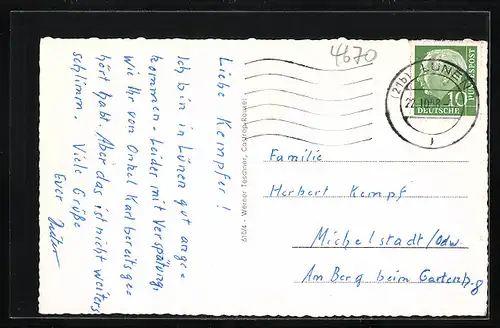 4670
Liebe Kempfer!
Ich bin in Lünen gut ange=
kommen - Leider mit Verspätung,
wie Ihr von Onkel Karl bereits ge=
hört habt. Aber das ist nicht weiters
schlimm. Viele Grüße
Euer
Werner Tessmer, Castrop-Rauxel
(21b) LÜNEN
22.10.58
10
DEUTSCHE
BUNDESPOST
Familie
Herbert Kempf
Michelstadt/Odw.
Am Berg beim